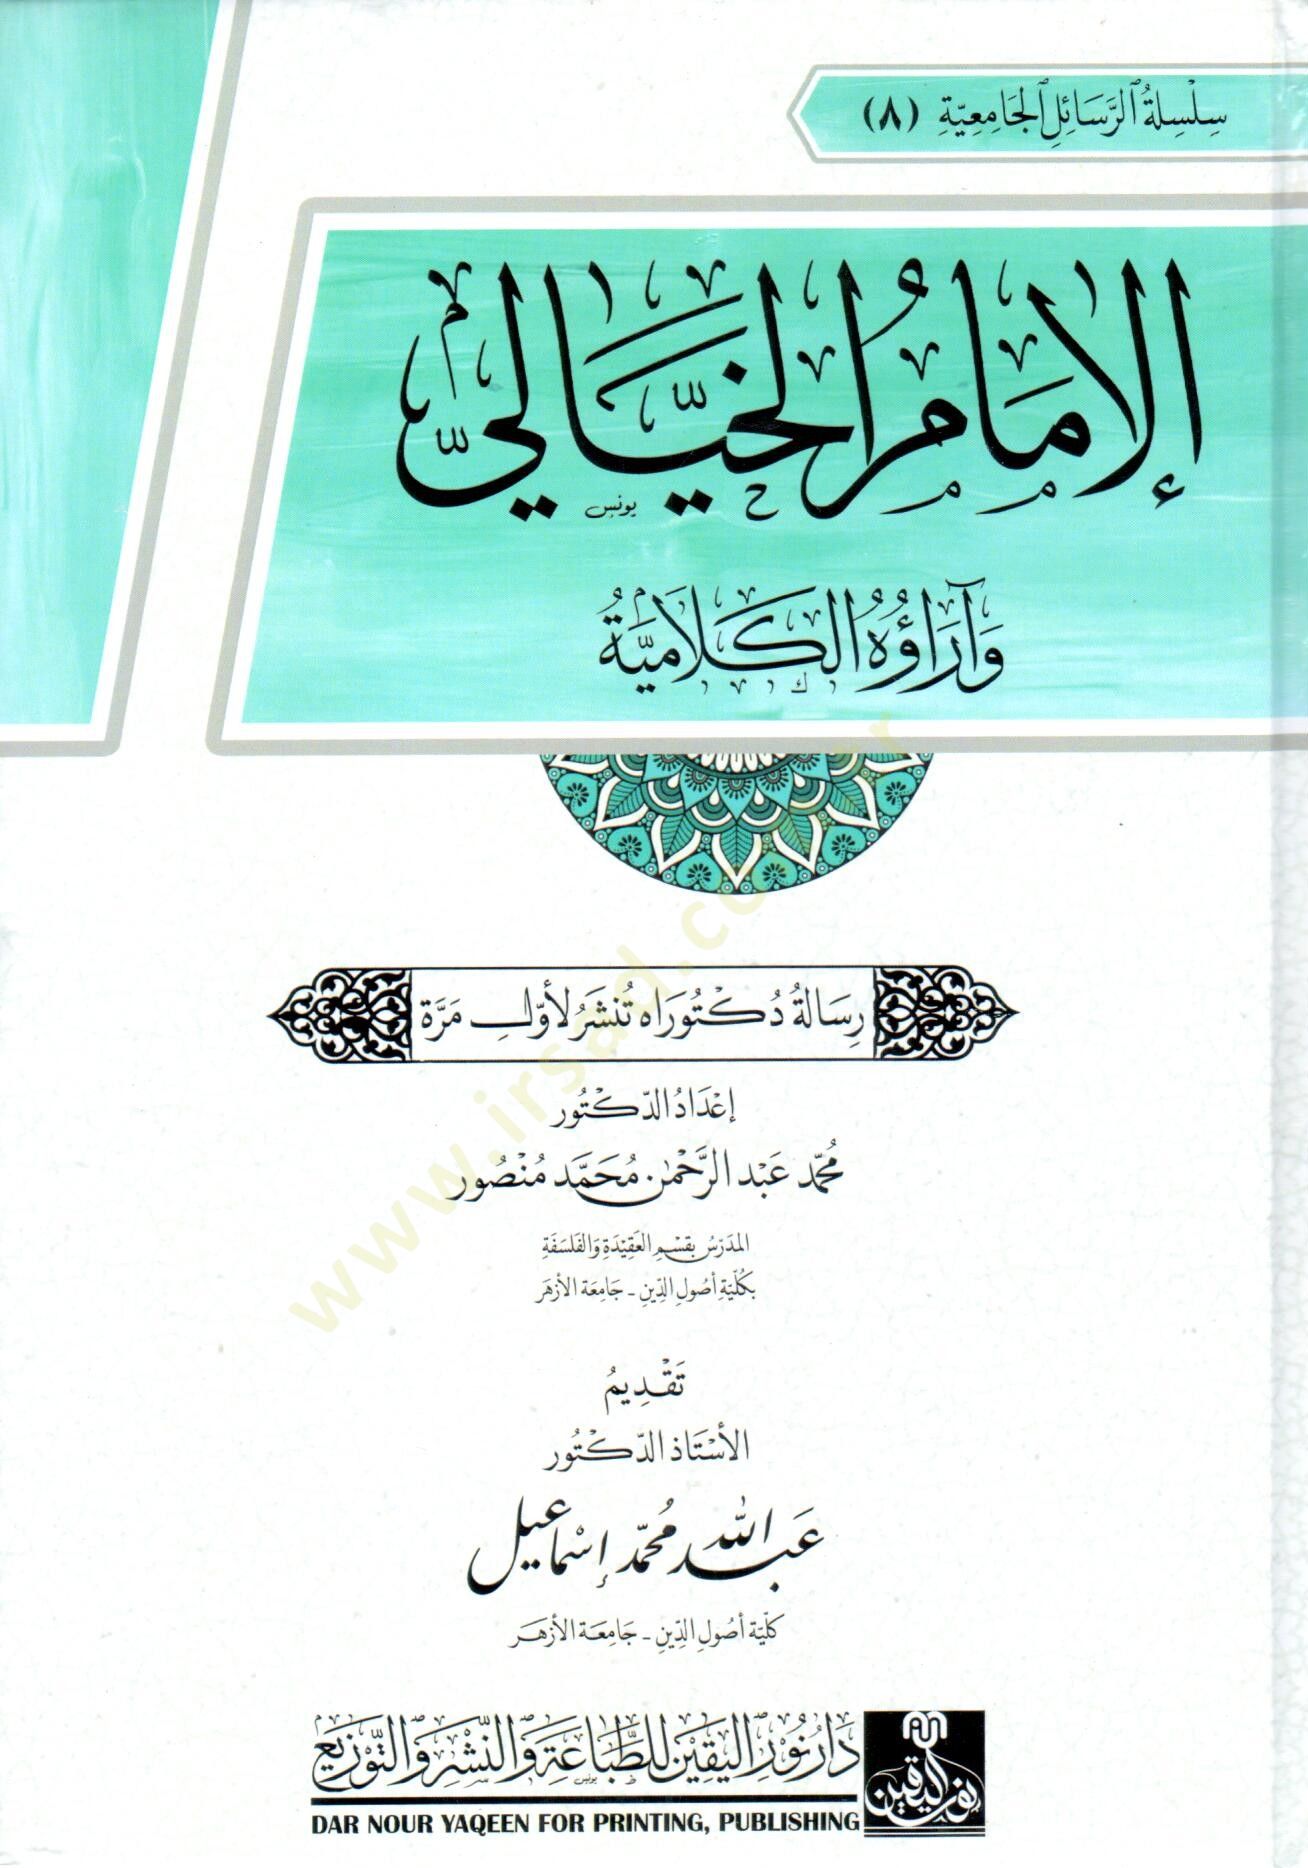 سِلْسِلَةُ ٱلرَّسَائِلِ ٱلجَامِعِيَّةِ (٨)
الإِمَامُ الخَيَالِيُّ
يونس
وَآرَاؤُهُ الكَلَامِيَّةُ
رِسَالَةُ دُكْتُورَاه تُنْشَرُ لأَوَّلِ مَرَّة
إِعْدَادُ الدّكْتُور
مُحَمَّد عَبْد الرَّحْمٰن مُحَمَّد مَنْصُور
المدَرِّسُ بِقِسْمِ العَقِيْدَةِ وَالفَلْسَفَةِ
بِكُلِّيَّةِ أصُولِ الدِّينِ - جَامِعَة الأَزْهَر
تَقْدِيمُ
الأُسْتَاذ الدّكْتُور
عَبْد اللَّه مُحَمَّد إِسْمَاعِيل
كلّيّة أصُولِ الدِّينِ - جَامِعَة الأزهَر
دَارُ نُورِ اليَقِينِ لِلطِّبَاعَةِ وَالنَّشْرِ وَالتَّوْزِيعِ
يونس
نور اليقين
DAR NOUR YAQEEN FOR PRINTING, PUBLISHING
www.irsad.com.tr